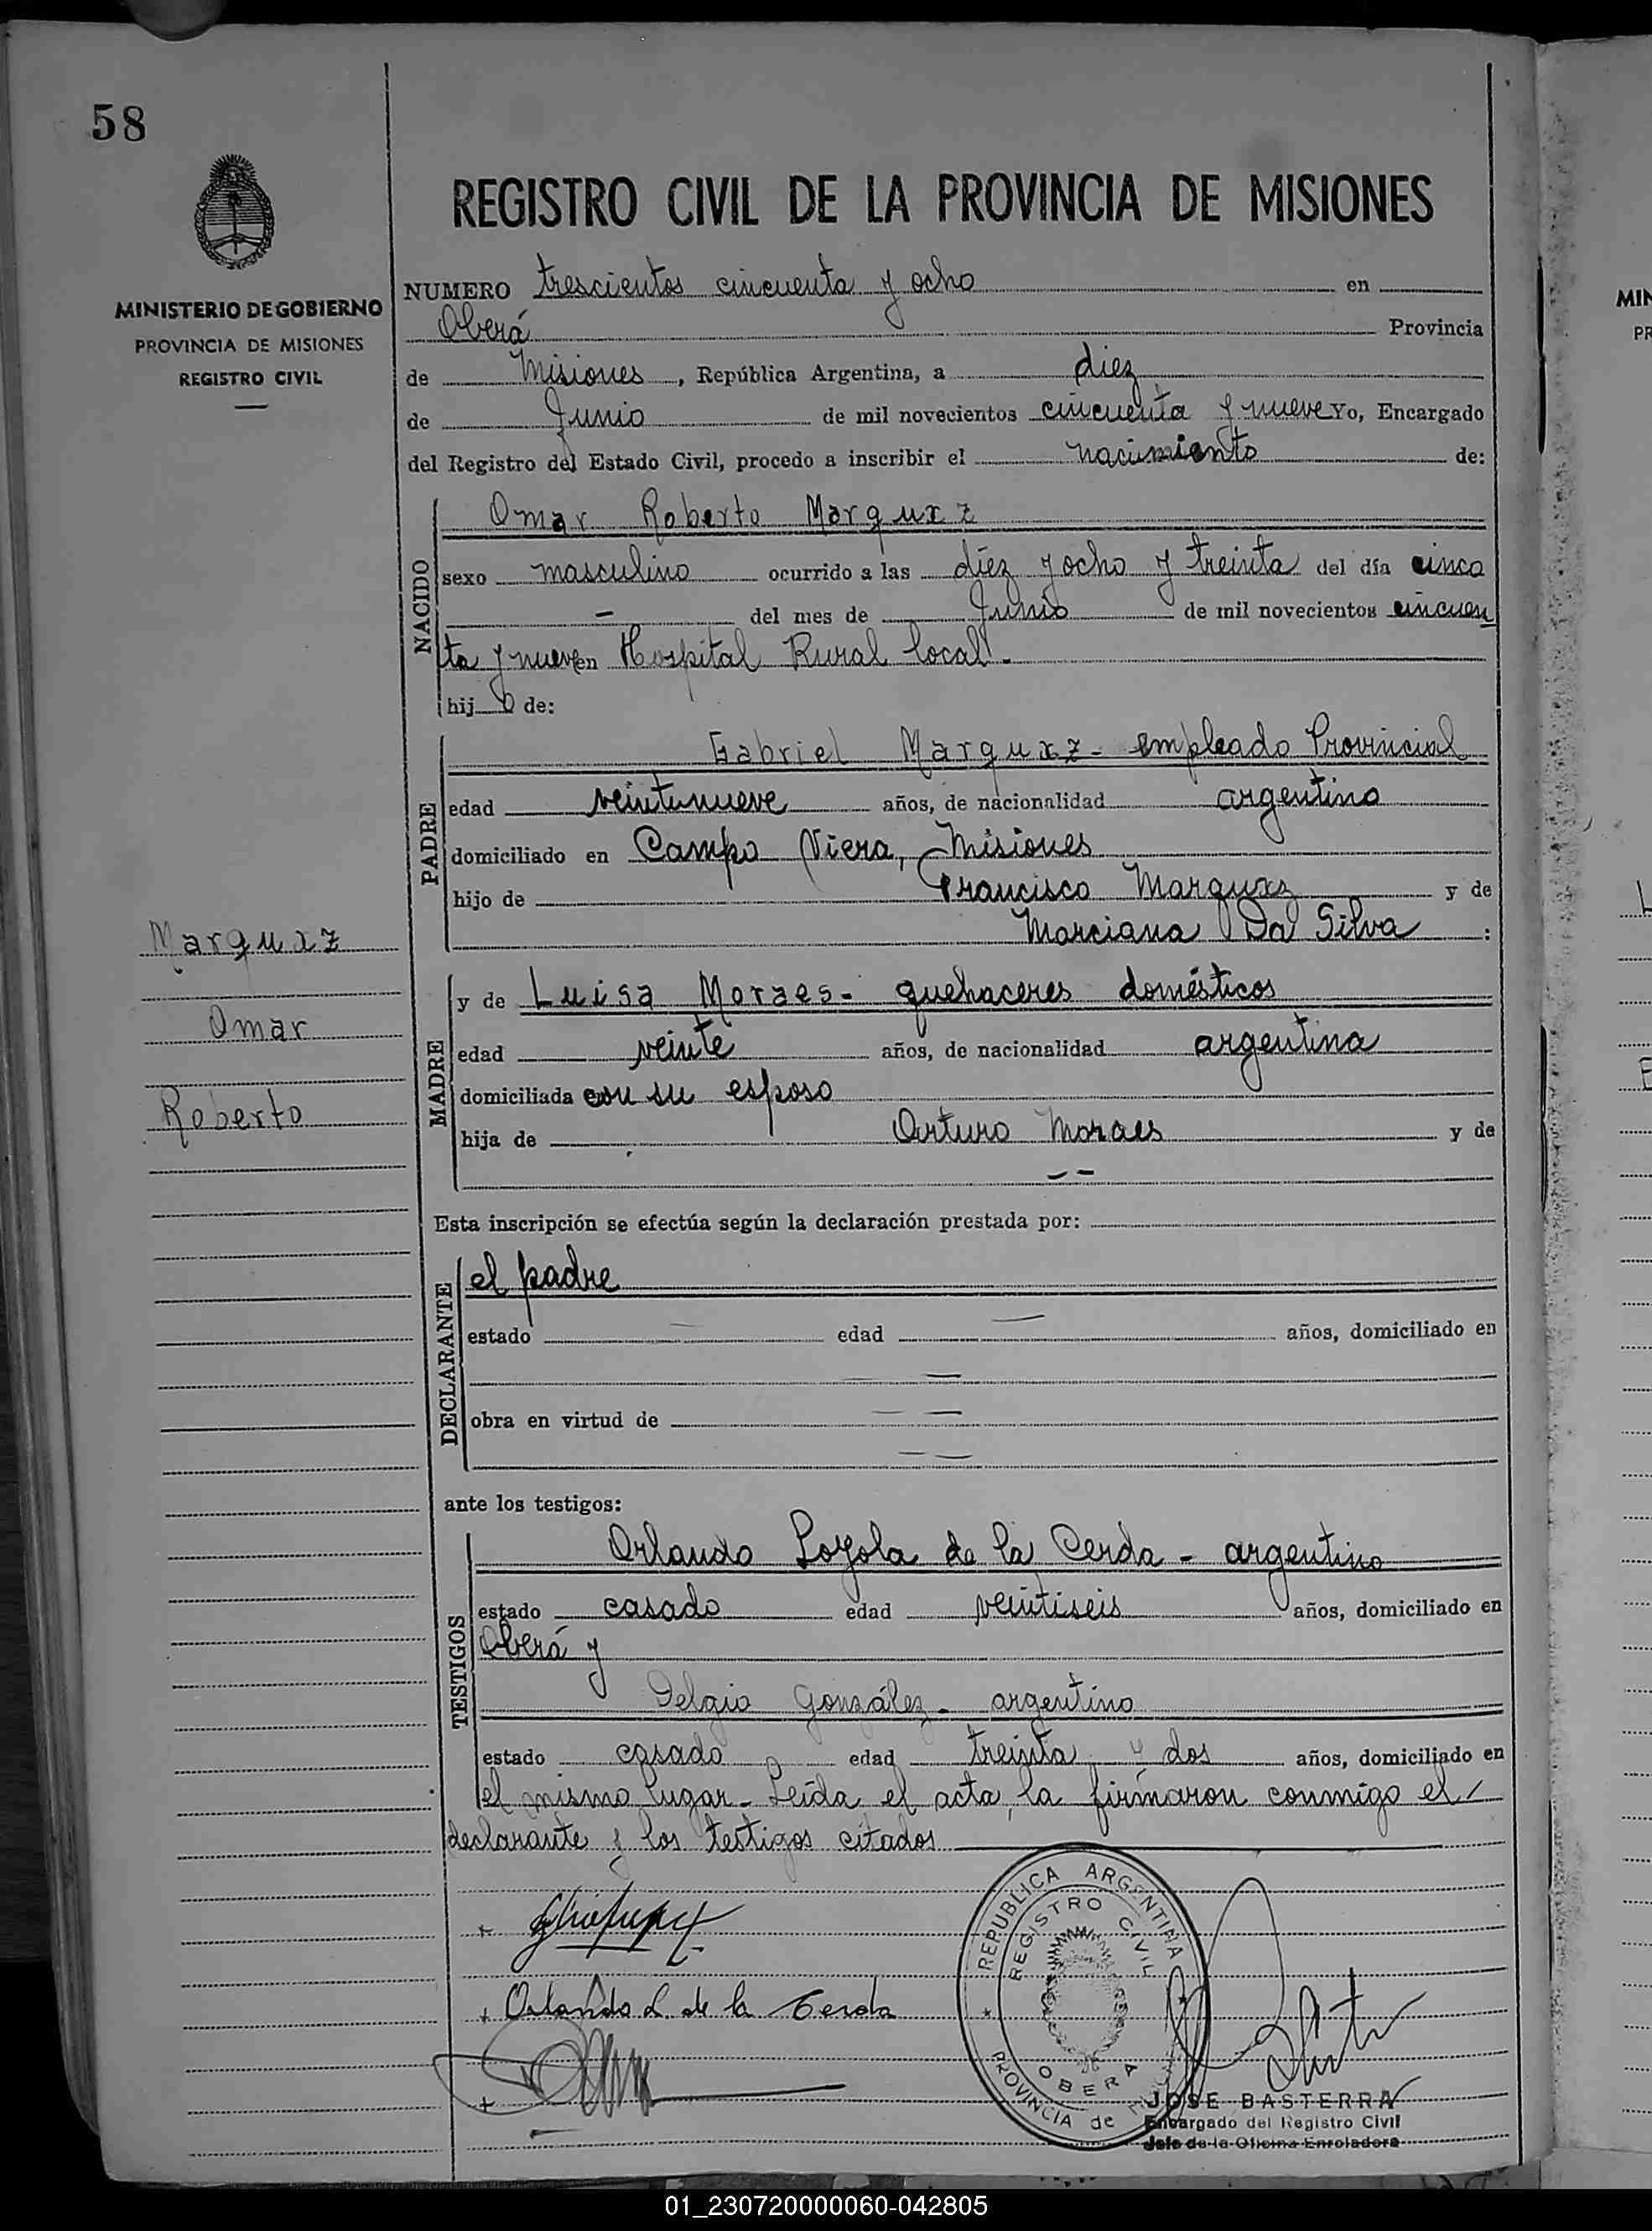 58
REGISTRO CIVIL DE LA PROVINCIA DE MISIONES
MINISTERIO DE GOBIERNO
PROVINCIA DE MISIONES
REGISTRO CIVIL
NUMERO trescientos cincuenta y ocho en
Oberá Provincia
de Misiones, República Argentina, a diez
de Junio de mil novecientos cincuenta y nueve Yo, Encargado
del Registro del Estado Civil, procedo a inscribir el nacimiento de:
NACIDO
Omar Roberto Marquez
sexo masculino ocurrido a las diez y ocho y treinta del día cinco
— del mes de Junio de mil novecientos cincuen
ta y nueve en Hospital Rural local.
hijo de:
PADRE
Gabriel Marquez - empleado Provincial
edad veintinueve años, de nacionalidad argentino
domiciliado en Campo Viera, Misiones
hijo de Francisco Marquez y de
Marciana Da Silva :
Marquez
Omar
Roberto
MADRE
y de Luisa Moraes - quehaceres domésticos
edad veinte años, de nacionalidad argentina
domiciliada con su esposo
hija de Arturo Moraes y de
— —
Esta inscripción se efectúa según la declaración prestada por:
DECLARANTE
el padre
estado — edad — años, domiciliado en
— —
obra en virtud de — —
— —
ante los testigos:
TESTIGOS
Orlando Loyola de la Cerda - argentino
estado casado edad veintiseis años, domiciliado en
Oberá y
Delgio González - argentino
estado casado edad treinta y dos años, domiciliado en
el mismo lugar - Leída el acta, la firmaron conmigo el
declarante y los testigos citados
Orlando L. de la Cerda
REPUBLICA ARGENTINA
REGISTRO CIVIL
OBERA
PROVINCIA de
JOSE BASTERRA
Encargado del Registro Civil
Jefe de la Oficina Enroladora
01_230720000060-042805